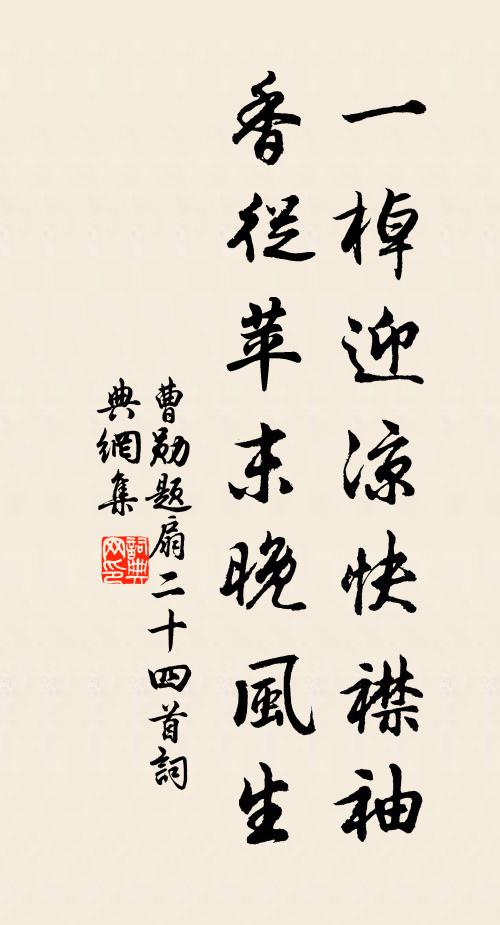 一棹迎涼快襟袖
香從苹末晚風生
曹勛題扇二十四首詞
典網集
詞典網印